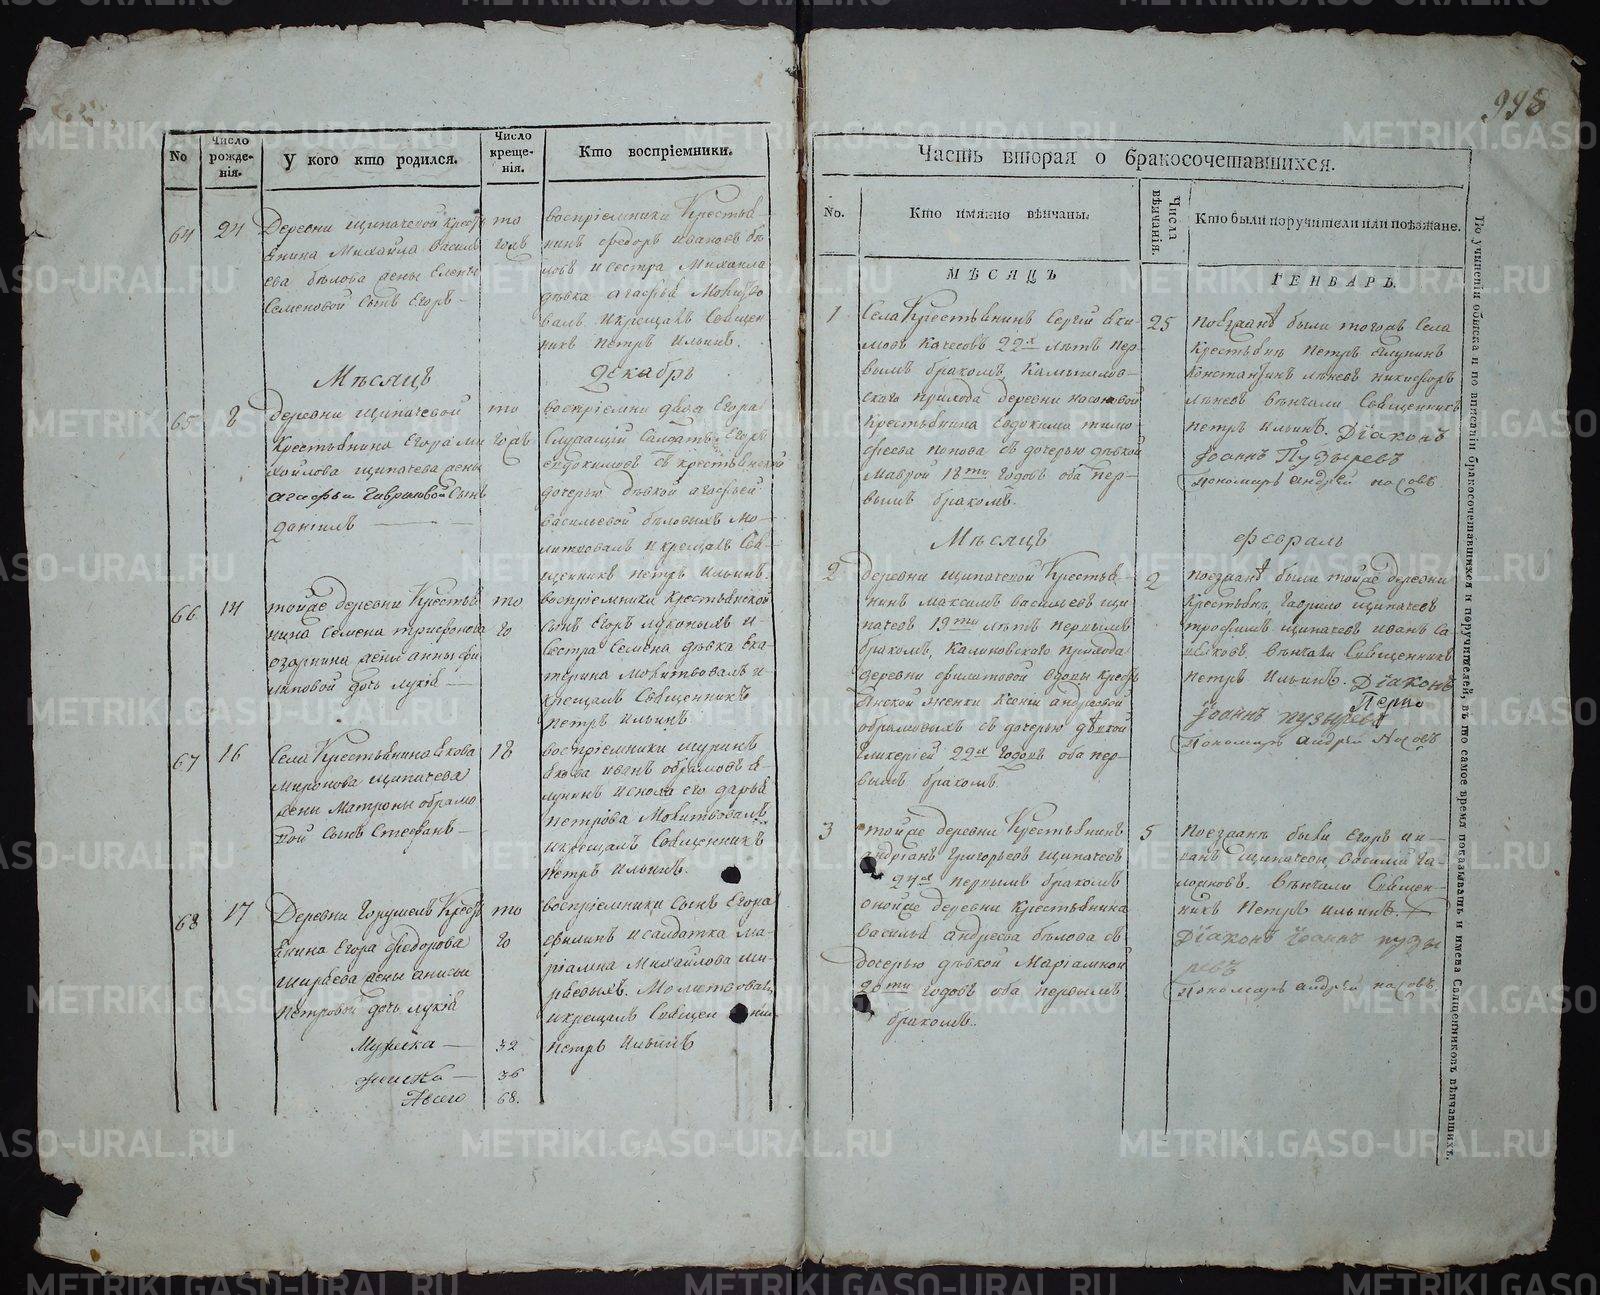 998
No
Число рожденія.
У кого кто родился.
Число крещенія.
Кто воспріемники.
64
24
Деревни Щипачевой Кресть
янина Михайла Василь
ева Бѣлова жены Елены
Семеновой сынъ Егоръ
то
гожъ
воспріемники Крестья
нинъ Федоръ Ивановъ Бѣ
ловъ и сестра Михаила
дѣвка Агафья Молитво
валъ и крещалъ Священ
никъ Петръ Ильинъ.
Мѣсяцъ
Декабрь
65
8
деревни Щипачевой
Крестьянина Егора Ми
хайлова Щипачева жены
Агафьи Гавриловой сынъ
Даніилъ
то
гожъ
Егора
Служащій Салдатъ Егоръ
Евдокимовъ съ крестьянской
дочерью дѣвкой Агафьей
Васильевой Бѣловыхъ Мо-
литвовалъ и крещалъ Свя-
щенникъ Петръ Ильинъ.
66
14
тойже деревни Крестья
нина Семена Трифонова
жены Анны Фи
липовой дочь Лукія
то
го
воспріемники крестьянской
сынъ Егоръ и
сестра Семена дѣвка Ека
терина Молитвовалъ и
крещалъ Священникъ
Петръ Ильинъ
67
16
Села Крестьянина Якова
Миронова Щипачева
жены Матроны Обрамо
вой сынъ Стефанъ
18
воспріемники
Якова Иванъ Обрамовъ
его Дарья
Петрова Молитвовалъ
и крещалъ Священникъ
Петръ Ильинъ.
68
17
Деревни Горушекъ Кресть
янина Егора Федорова
Ширяева жены Анисьи
Петровой дочь Лукія
то
го
воспріемники сынъ Егора
и салдатка Ма
ріамна Михайлова Ши-
ряевыхъ. Молитвовалъ
и крещалъ Священ ник
Петръ Ильинъ
Мужска — 32
женска — 36
Всего 68.
Часть вторая о бракосочетавшихся.
No.
Кто имянно вѣнчаны.
Числа вѣнчанія.
Кто были поручители или поѣзжане.
МѢСЯЦЪ
ГЕНВАРЬ.
1
Села Крестьянинъ Сергій Яки-
мовъ Качесовъ 22х лѣтъ пер-
вымъ бракомъ, Камышлов-
ского прихода деревни Насоновой
Крестьянина Евдокима Тимо-
феева Попова съ дочерью дѣвкой
Маврой 18ти годовъ оба пер-
вымъ бракомъ.
25
Поезжанѣ были тогожъ Села
Крестьянѣ Петръ
Константинъ Никифоръ
вѣнчали Священникъ
Петръ Ильинъ. Діаконъ
Іоаннъ Пузыревъ
Пономарь Андрей Носовъ
Мѣсяцъ
Февраль
2
Деревни Щипачевой Крестья-
нинъ Максимъ Васильевъ Щи
пачевъ 19ти лѣтъ первымъ
бракомъ, Калиновского прихода
деревни Филатовой вдовы кресть
янской женки Ксеніи Андреевой
съ дочерью дѣвкой
Гликеріей 22х годовъ оба пер-
вымъ бракомъ.
2
Поезжанѣ были тойже деревни
Крестьянѣ, Гаврило Щипачевъ
Трофимъ Щипачевъ Иванъ
вѣнчали Священникъ
Петръ Ильинъ. Діаконъ
Іоаннъ Пузыревъ
Пономарь Андрей Носовъ
3
тойже деревни Крестьянинъ
Андріанъ Григорьевъ Щипачевъ
24х первымъ бракомъ
тойже деревни Крестьянина
Василья Андреева Бѣлова съ
дочерью дѣвкой Маріамной
20ти годовъ оба первымъ
бракомъ.
5
Поезжанѣ были Егоръ
Щипачевы, Василій
вѣнчали Священ-
никъ Петръ Ильинъ.
Діаконъ Іоаннъ Пузы
ревъ
Пономарь Андрей Носовъ
По учиненіи обыска и по вписаніи бракосочетавшихся и поручителей, въ то самое время показывать и имена Священниковъ вѣнчавшихъ.
METRIKI.GASO-URAL.RU